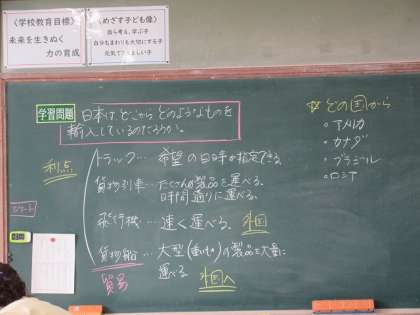 〈学校教育目標〉
未来を生きぬく
力の育成
〈めざす子ども像〉
自ら考え、学ぶ子
自分もまわりも大切にする子
元気でたくましい子
学習問題
日本は、どこから どのようなものを
輸入しているのだろうか。
利点
トラック… 希望の日時が指定できる
貨物列車… たくさんの製品を運べる。
時間通りに運べる。
飛行機… 速く運べる。 外国
貨物船… 大型(重いもの)の製品を大量に
運べる 外国へ
貿易
☆どの国から
・アメリカ
・カナダ
・ブラジル
・ロシア